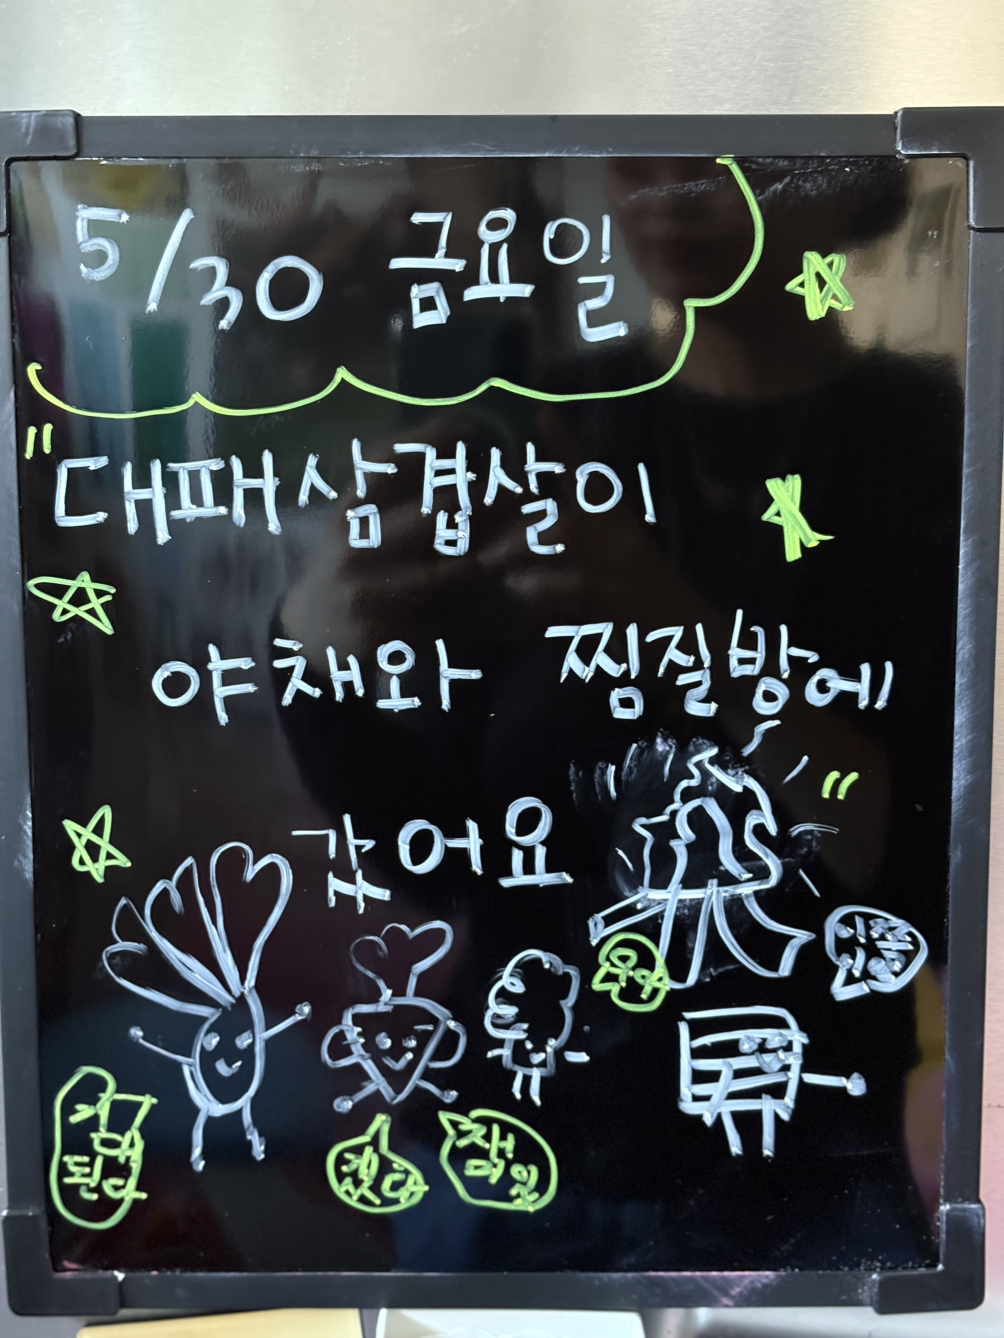 5/30 금요일
"대패삼겹살이
야채와 찜질방에
갔어요"
기대
된다